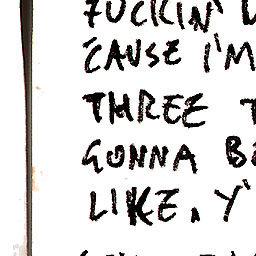 FUCKIN'
'CAUSE I'M
THREE
GONNA
LIKE, Y'